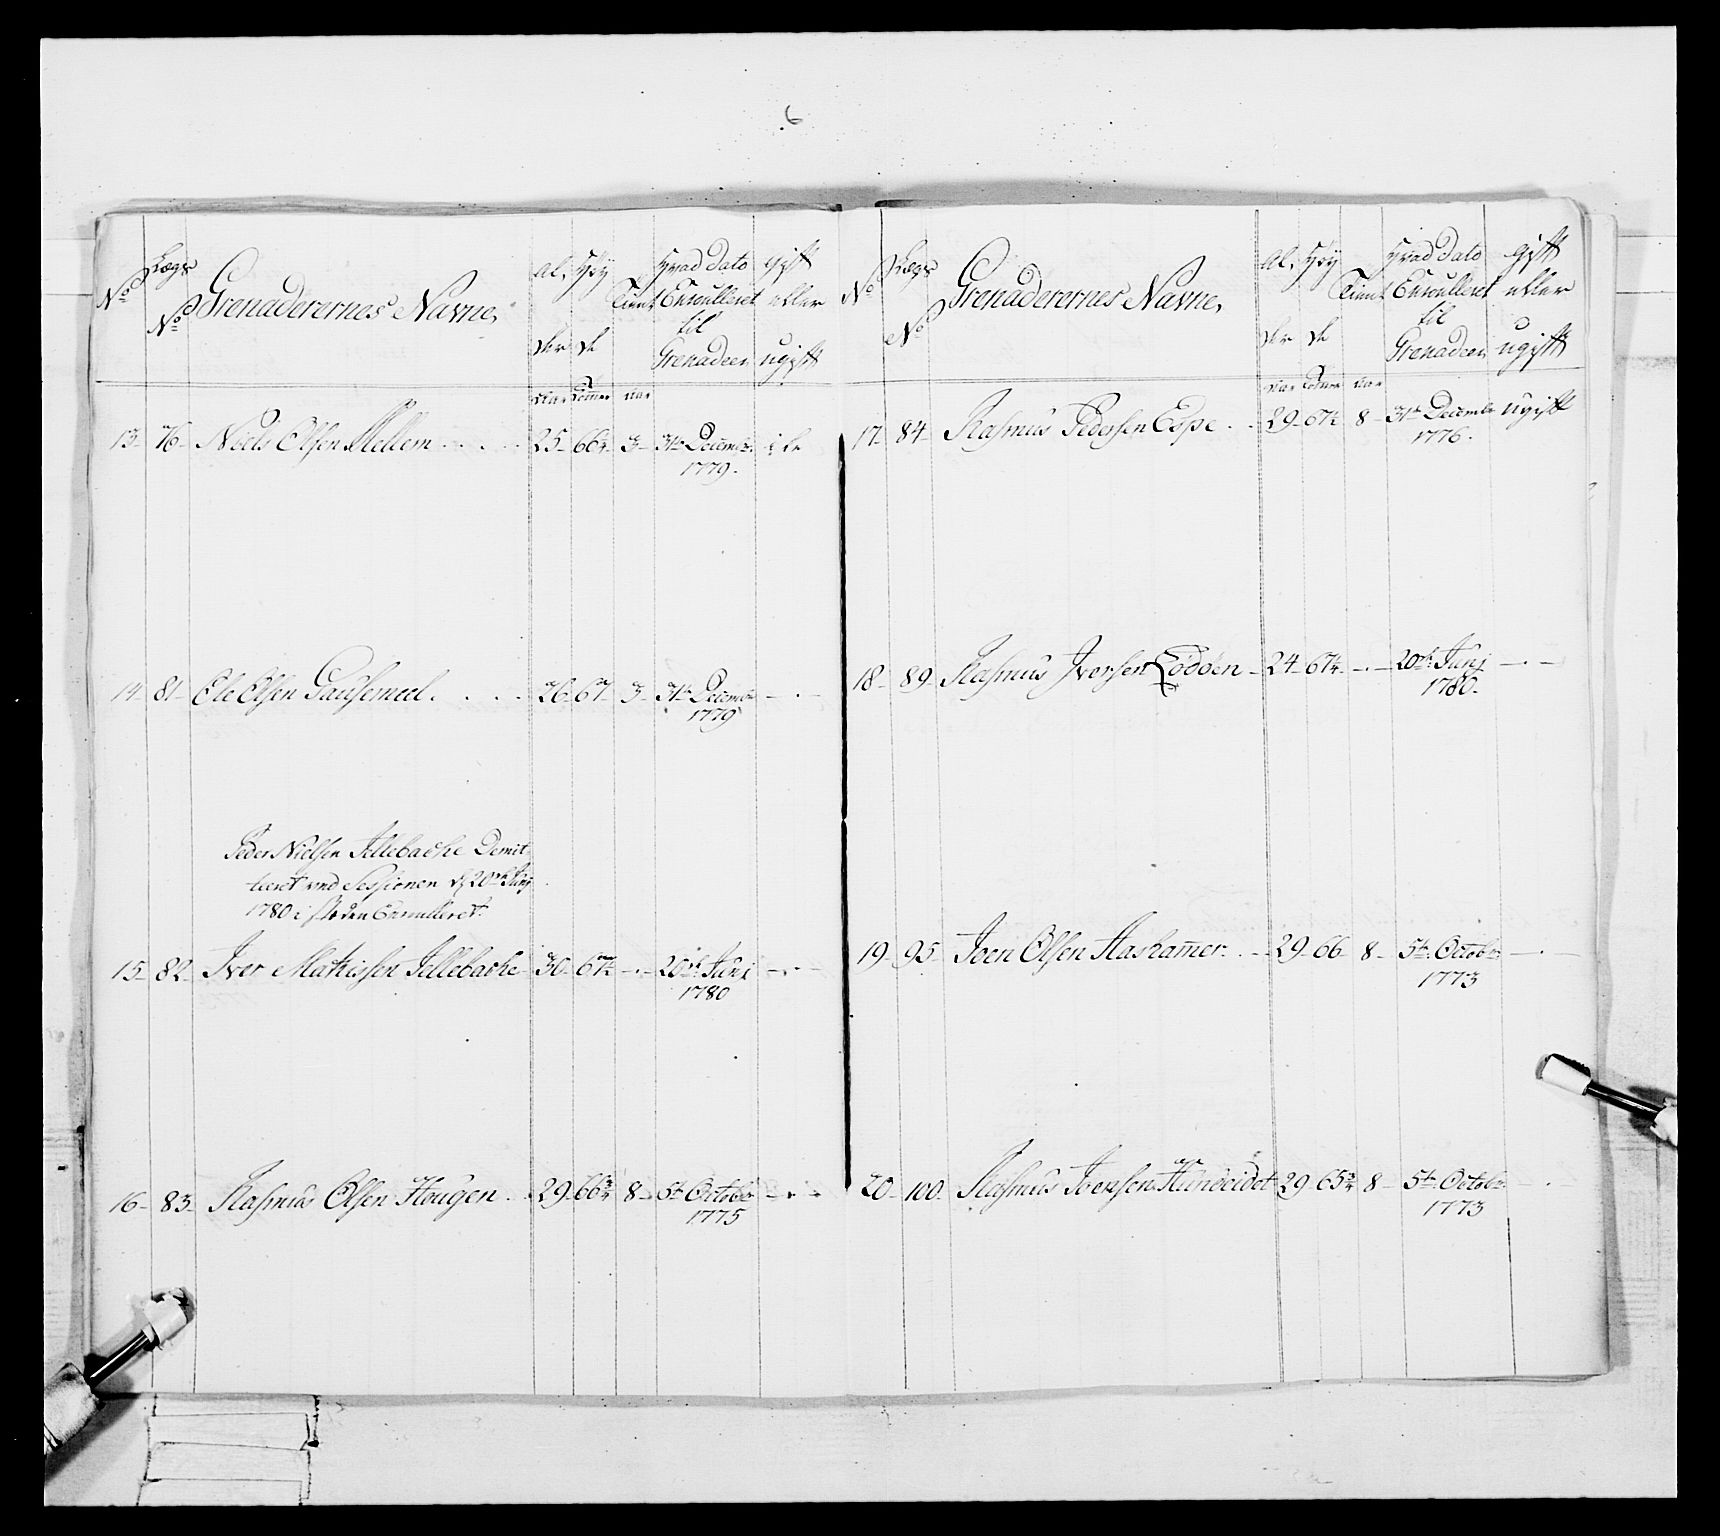 6
No Lægs No Grenaderernes Navne, Al, der Høy de Tient Hvad Dato Enroulleret til Grenadeer gift eller ugift
var Tomer var
13 76 Niels Olsen Mellem 25 66 3 31te Decembr.
1779.
14 81 Ole Olsen Gausemeel 26 67 3 31te Decembr
1779
Peder Nielsen Jellebache Demit-
teret ved Sessionen d 20de Junj
1780 i steden Enrulleret.
15 82 Iver Mathissen Jellebache 30 67½ 20de Junj
1780
16 83 Rasmus Olsen Hougen 29 66¾ 8 5te Octobr
1775
No Lægs No Grenaderernes Navne, Al, der Høy de Tient Hvad Dato Enroulleret til Grenadeer gift eller ugift
var Tomer var
17 84 Rasmus Pedersen Espe 29 67½ 8 31te Decembr ugift
1776.
18 89 Rasmus Iversen Lodøen 24 67¼ 20de Junj
1780.
19 95 Joen Olsen Aaskamer 29 66 8 5te Octobr
1773
20 100 Rasmus Joensen Hundeidet 29 65¾ 8 5te Octobr
1773